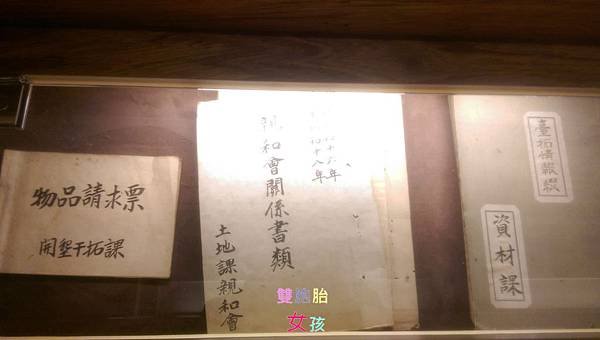 物品請求票
開墾干拓課
昭和十六年
昭和十八年
親和會關係書類
土地課親和會
臺拓情報綴
資材課
雙胞胎
女孩